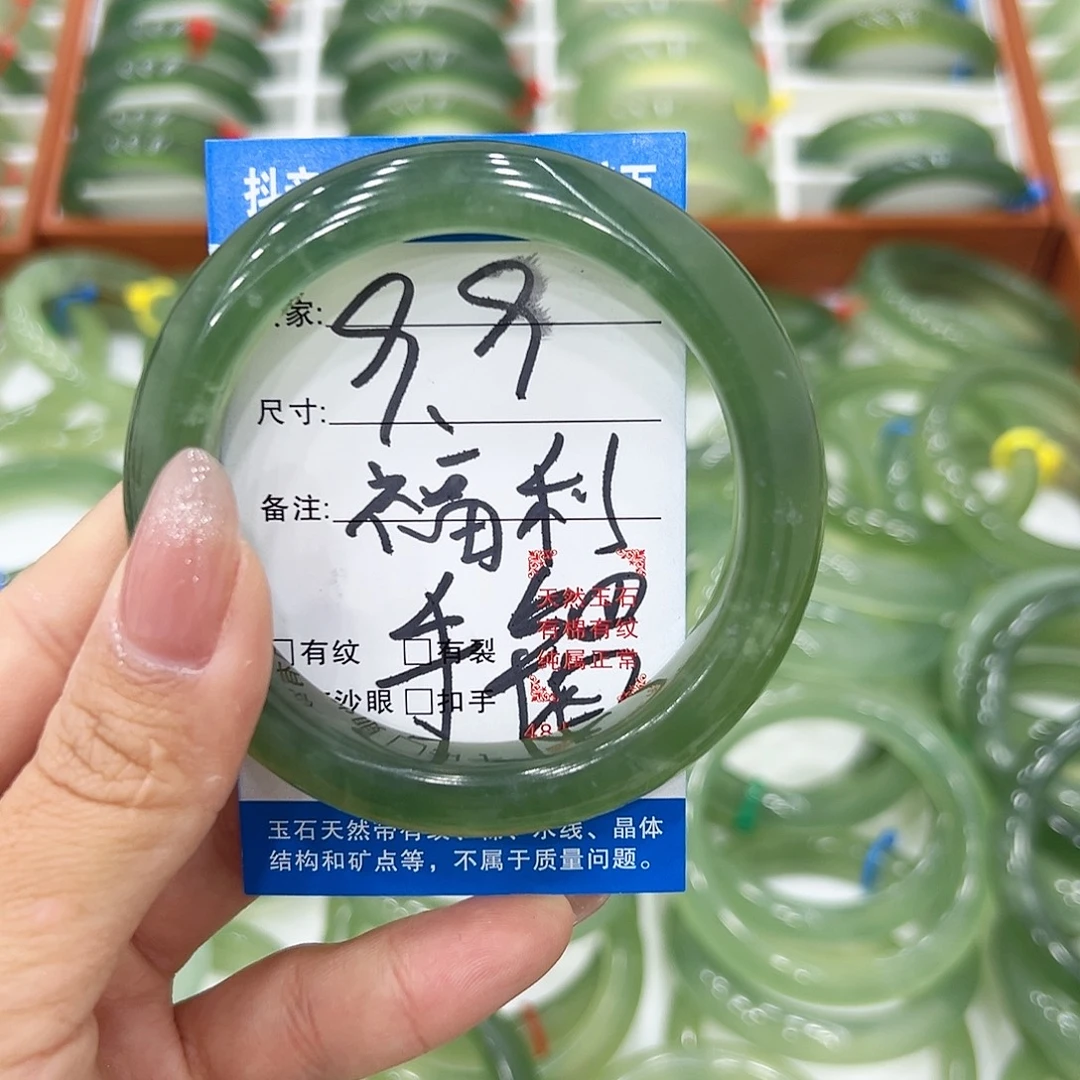 抖音
家:
99、
尺寸:
备注:
福利
手镯
天然玉石
有棉有纹
纯属正常
□有纹 □有裂
沙眼 □扣手
玉石天然带有纹、棉、水线、晶体
结构和矿点等，不属于质量问题。